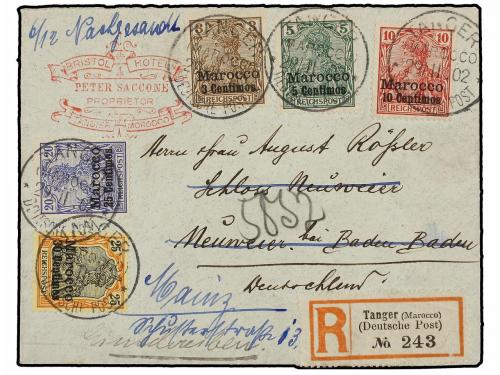 6/12 Nachgesandt
BRISTOL HOTEL
PETER SACCONE
PROPRIETOR
TANGIER MOROCCO
TANGER
MAROCCO
DEUTSCHE POST
3
Marocco
3 Centimos
REICHSPOST
5 5
Marocco
5 Centimos
REICHSPOST
10 10
Marocco
10 Centimos
REICHSPOST
TANGER
02
20 20
Marocco
25 Centimos
REICHSPOST
25 25
Marocco
REICHSPOST
Herrn & Frau August Rößler
Schloss Neuweier
5832
Neuweier bei Baden Baden
Deutschland
Mainz
Schusterstraße 13.
Einschreiben
R
Tanger (Marocco)
(Deutsche Post)
No 243